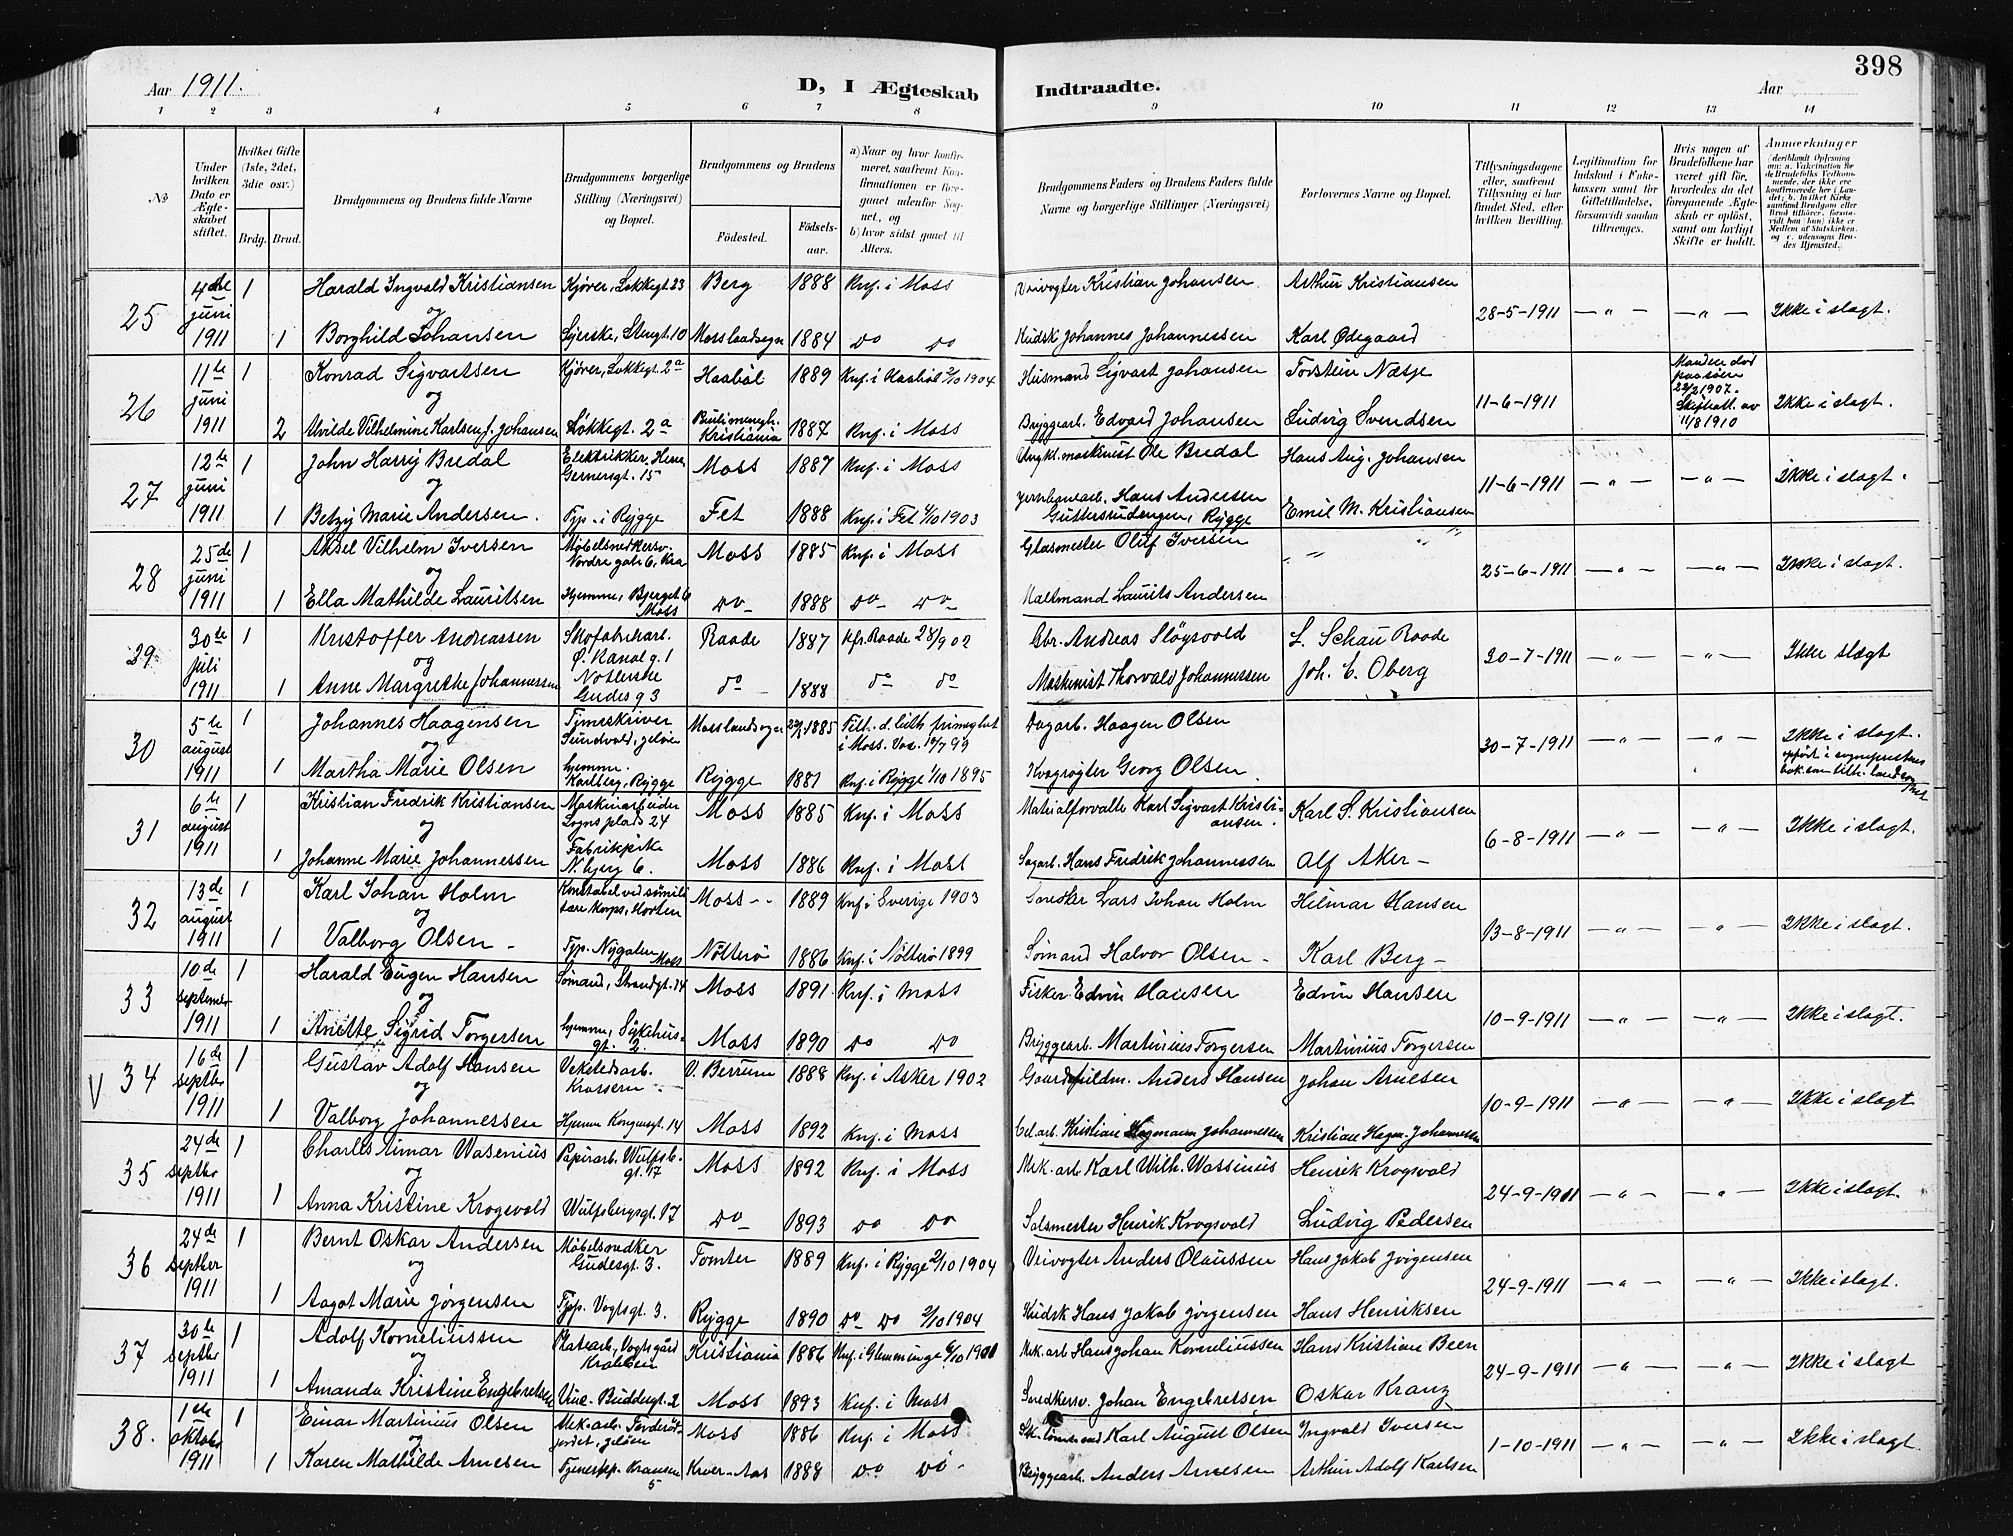 398
Aar 1911.
D, I Ægteskab Indtraadte.
Aar
1 2 3 4 5 6 7 8 9 10 11 12 13 14
No
Under hvilken Dato er Ægteskabet stiftet.
Hvilket Gifte (1ste, 2det, 3die osv.)
Brdg. Brud.
Brudgommens og Brudens fulde Navne
Brudgommens borgerlige Stilling (Næringsvei) og Bopæl.
Brudgommens og Brudens
Fødested. Fødselsaar.
a) Naar og hvor konfirmeret, saafremt Konfirmationen er foregaaet udenfor Sognet, og
b) hvor sidst gaaet til Alters.
Brudgommens Faders og Brudens Faders fulde Navne og borgerlige Stillinger (Næringsvei)
Forlovernes Navne og Bopæl.
Tillysningsdagene eller, saafremt Tillysning ei har fundet Sted, efter hvilken Bevilling.
Legitimation for Indskud i Enkekassen samt for Giftetilladelse, forsaavidt saadan tiltrænges.
Hvis nogen af Brudefolkene har været gift før, hvorledes da det foregaaende Ægteskab er opløst, samt om lovligt Skifte er holdt.
Anmærkninger
25 4de juni 1911 1 Harald Ingvald Kristiansen Kjører, Løkkegt. 23 Berg 1888 Knf. i Moss Veivogter Kristian Johansen Arthur Kristiansen 28-5-1911 — " — — " — Ikke i slagt.
og
1 Borghild Johansen Syerske, Stengt. 10 Moss landsogn 1884 Do Do Kudsk Johannes Johannessen Karl Ødegaard
26 11te juni 1911 1 Konrad Sigvartsen Kjører, Løkkegt. 2a Haabøl 1889 Knf. i Haabøl 2/10 1904 Husmand Sigvart Johansen Torstein Næsje 11-6-1911 Manden død 22/2 1907. Skifteatt. av 11/8 1910 Ikke i slagt.
og
2 Alvilde Vilhelmine Karlsen f. Johansen Løkkegt. 2a Kristiania 1887 Knf. i Moss Bryggearb. Edvard Johansen Ludvig Svendsen
27 12te juni 1911 1 John Harry Bredal Elektrikker, Henr. Gernersgt. 15 Moss 1887 Knf. i Moss maskinist Ole Bredal Hans Aug. Johansen 11-6-1911 — " — — " — Ikke i slagt.
og
1 Betzy Marie Andersen. Typ. i Rygge Fet 1888 Knf. i Fet 4/10 1903 Jernbanearb. Hans Andersen Guttersrudengen, Rygge Emil M. Kristiansen
28 25de juni 1911 1 Aksel Vilhelm Iversen Møbelsnedkersv. Nordre gate 6, Kra Moss 1885 Knf. i Moss Glasmester Oluf Iversen " " 25-6-1911 — " — — " — Ikke i slagt.
og
1 Ella Mathilde Lauritsen Hjemme, Bjerget 6 Moss Do 1888 Do Do Maltmand Laurits Andersen
29 30te juli 1911 1 Kristoffer Andreassen Skofabrikarb. Ø. Kanal g. 1 Raade 1887 Kfr. Raade 28/9 02 Gbr. Andreas Sløysvold L. Schau Raade 30-7-1911 — " — — " — Ikke slægt
og
1 Anne Margrethe Johannessen Gudes g 3 do 1888 do do Maskinist Thorvald Johannessen Joh. C. Oberg
30 5te august 1911 1 Johannes Haagensen Timeskriver Sundvold, Jeløen Moss landsogn 1885 Tilh. d. luth. frimenghet i Moss. Vax. 14/7 99 Dagarb. Haagen Olsen 30-7-1911 — " — — " — Ikke i slagt.
og
1 Martha Marie Olsen hjemme. Karlberg, Rygge Rygge 1881 Knf. i Rygge 1/10 1895 Kvægrøgter Georg Olsen
31 6te august 1911 1 Kristian Fredrik Kristiansen Maskinarbeider Logns plads 24 Moss 1885 Knf. i Moss Materialforvalter Karl Sigvart Kristiansen. Karl S. Kristiansen 6-8-1911 — " — — " — Ikke i slagt.
og
1 Johanne Marie Johannessen Fabrikpike N. bjerg 6. Moss 1886 Knf. i Moss Sagarb. Hans Fredrik Johannessen Alf Aker —
32 13de august 1911 1 Karl Johan Holm Korps, Horten Moss -- 1889 Knf. i Sverige 1903 Snedker Lars Johan Holm Hilmar Hansen 13-8-1911 — " — — " — Ikke i slagt.
og
1 Valborg Olsen — Typ. Nygaten Moss Nøtterø 1886 Knf. i Nøtterø 1899 Sømand Halvor Olsen — Karl Berg —
33 10de september 1911 1 Harald Eugen Hansen Sømand, Strandgt. 14 Moss 1891 Knf. i Moss Fisker Edvin Hansen Edvin Hansen 10-9-1911 — " — — " — Ikke i slagt.
og
1 Anette Sigrid Torgersen hjemme, Sykehusgt. 2 Moss 1890 Do Do Bryggearb. Martinius Torgersen Martinius Torgersen
V 34 16de septbr 1911 1 Gustav Adolf Hansen Krassern V. Berrum 1888 Knf. i Asker 1902 Anders Hansen Johan Arnesen 10-9-1911 — " — — " — Ikke i slagt
og
1 Valborg Johannessen Hjemme Kongensgt. 14 Moss 1892 Knf. i Moss Cel.arb. Kristian Hagemann Johannessen Kristian Hagem. Johannessen
35 24de septbr 1911 1 Charles Aimar Wasenius Papirarb. Wulfsb.gt. 17 Moss 1892 Knf. i Moss Mek. arb. Karl Wilh. Wassinius Henrik Krogsvold 24-9-1911 — " — — " — Ikke i slagt.
og
1 Anna Kristine Krogsvold Wulfsbergsgt. 17 Do 1893 Do Do Salsmester Henrik Krogsvold Ludvig Pedersen
36 24de septber 1911 1 Bernt Oskar Andersen Møbelsnedker Gudesgt. 3. Tomter 1889 Knf. i Rygge 2/10 1904 Veivogter Anders Olaussen Hans Jakob Jørgensen 24-9-1911 — " — — " — Ikke i slagt.
og
1 Aagot Marie Jørgensen Typ. Vogtsgt. 3. Rygge 1890 Do Do 2/10 1904 Kudsk Hans Jakob Jørgensen Hans Henriksen
37 30te septbr 1911 1 Adolf Korneliussen Platearb., Vogtsgård Krabben Kristiania 1886 Knf. i Glemminge 6/10 1901 Mek. arb. Hans Johan Korneliussen Hans Kristian Been 24-9-1911 — " — — " — Ikke i slagt
og
1 Amanda Kristine Engebretsen Buddesgt. 2 Moss 1893 Knf. i Moss Snedkersv. Johan Engebretsen Oskar Kranz
38. 1ste oktober 1911 1 Einar Martinius Olsen Mek. arb. Jeløen Moss 1886 Knf. i Moss Karl August Olsen Ingvald Iversen 1-10-1911 — " — — " — Ikke i slagt.
og
1 Karen Mathilde Arnesen Tjenestep. Kransen 5 Kroer-Aas 1888 Do Do Bryggearb. Anders Arnesen Arthur Adolf Karlsen